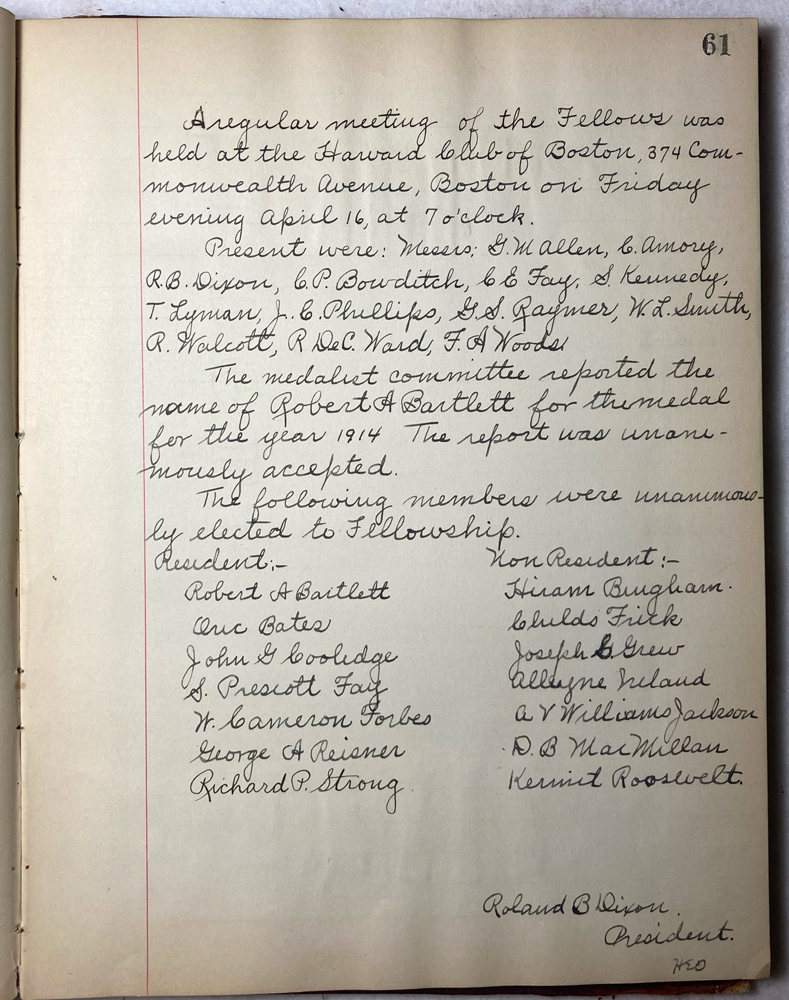 61
A regular meeting of the Fellows was
held at the Harvard Club of Boston, 374 Com-
monwealth Avenue, Boston on Friday
evening April 16, at 7 o'clock.
Present were: Messrs; G. M Allen, C. Amory,
R.B. Dixon, C.P. Bowditch, C E Fay, S. Kennedy,
T. Lyman, J. C. Phillips, G. S. Raymer, W. L. Smith,
R. Walcott, R DeC. Ward, F. A Woods.
The medalist committee reported the
name of Robert A Bartlett for the medal
for the year 1914 The report was unani-
mously accepted.
The following members were unanimous-
ly elected to Fellowship.
Resident:- Non Resident:-
Robert A Bartlett Hiram Bingham.
Oric Bates Childs Frick
John G Cooledge Joseph C Grew
S. Prescott Fay Alleyne Ireland
W. Cameron Forbes A V Williams Jackson
George A Reisner D. B MacMillan
Richard P. Strong. Kermit Roosevelt.
Roland B Dixon.
President.
HEO